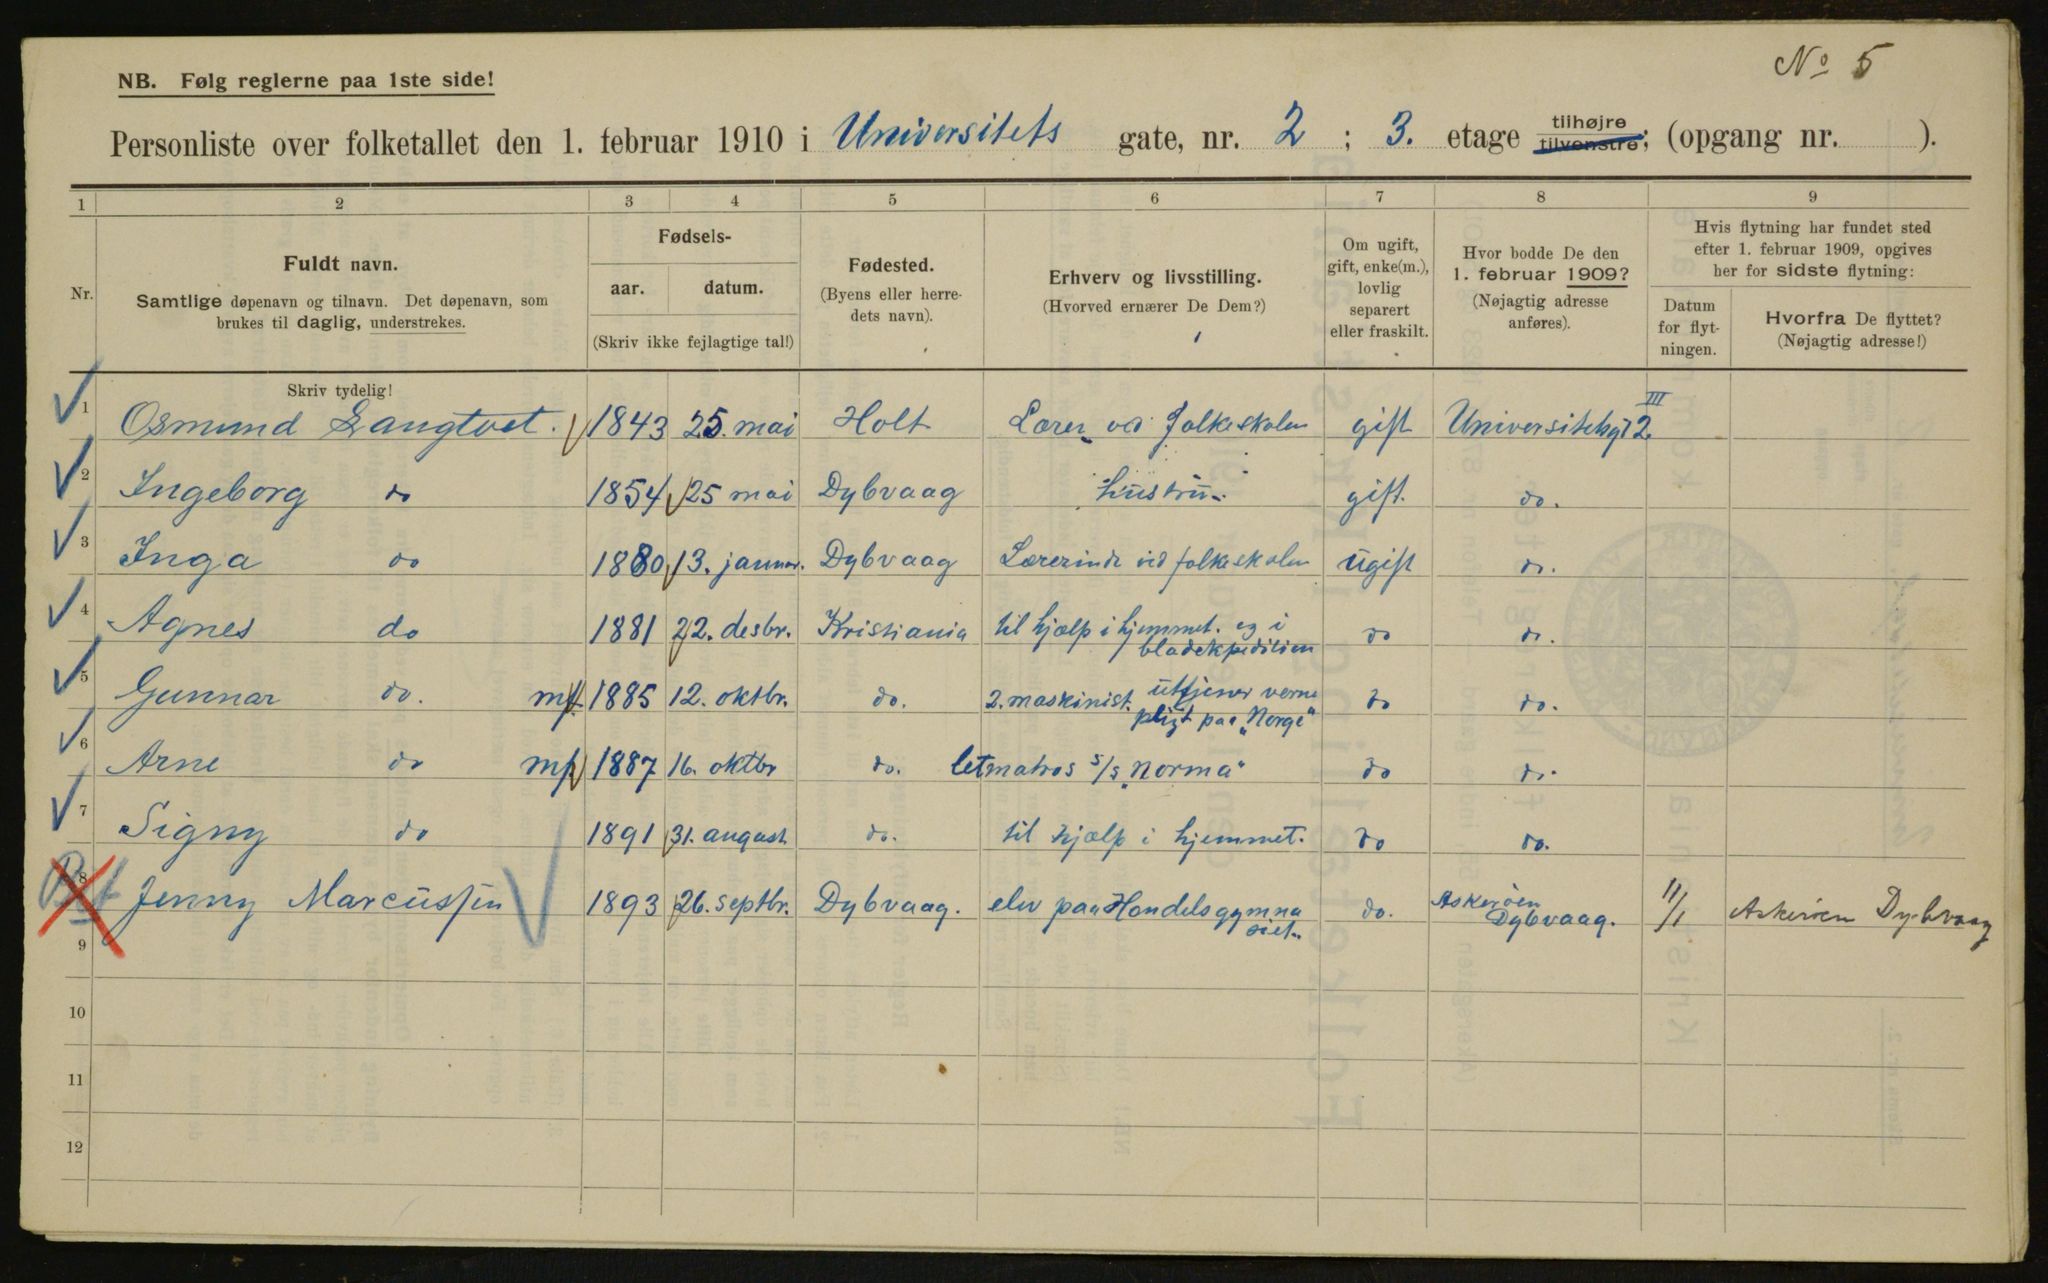 No 5
NB. Følg reglerne paa 1ste side!
Personliste over folketallet den 1. februar 1910 i Universitets gate, nr. 2 ; 3. etage tilhøjre tilvenstre; (opgang nr. ).
1 2 3 4 5 6 7 8 9
Nr.
Fuldt navn.
Samtlige døpenavn og tilnavn. Det døpenavn, som
brukes til daglig, understrekes.
Fødsels-
aar. datum.
(Skriv ikke fejlagtige tal!)
Fødested.
(Byens eller herre-
dets navn).
Erhverv og livsstilling.
(Hvorved ernærer De Dem?)
Om ugift,
gift, enke(m.),
lovlig
separert
eller fraskilt.
Hvor bodde De den
1. februar 1909?
(Nøjagtig adresse
anføres).
Hvis flytning har fundet sted
efter 1. februar 1909, opgives
her for sidste flytning:
Datum
for flyt-
ningen.
Hvorfra De flyttet?
(Nøjagtig adresse!)
Skriv tydelig!
1 Osmund Langtvet. 1843 25. mai Holt Lærer ved folkeskolen gift Universitetsgt 2. III
2 Ingeborg do 1854 25 mai Dybvaag hustru. gift. do.
3 Inga do 1880 13. januar. Dybvaag Lærerinde ved folkeskolen ugift do.
4 Agnes do 1881 22. desbr. Kristiania til hjælp i hjemmet. og i
bladekspedition do do.
5 Gunnar do. 1885 12. oktbr. do. 2. maskinist. uttjener verne
pligt paa "Norge" do do.
6 Arne do 1887 16. oktbr do. letmatros s/s "Norma" do do.
7 Signy do 1891 31. august do. til hjælp i hjemmet. do do.
8 Jenny Marcussen 1893 26. septbr. Dybvaag. elev paa Handelsgymna
siet. do. Askerøen
Dybvaag. 11/1 Askerøen Dybvaag
9
10
11
12